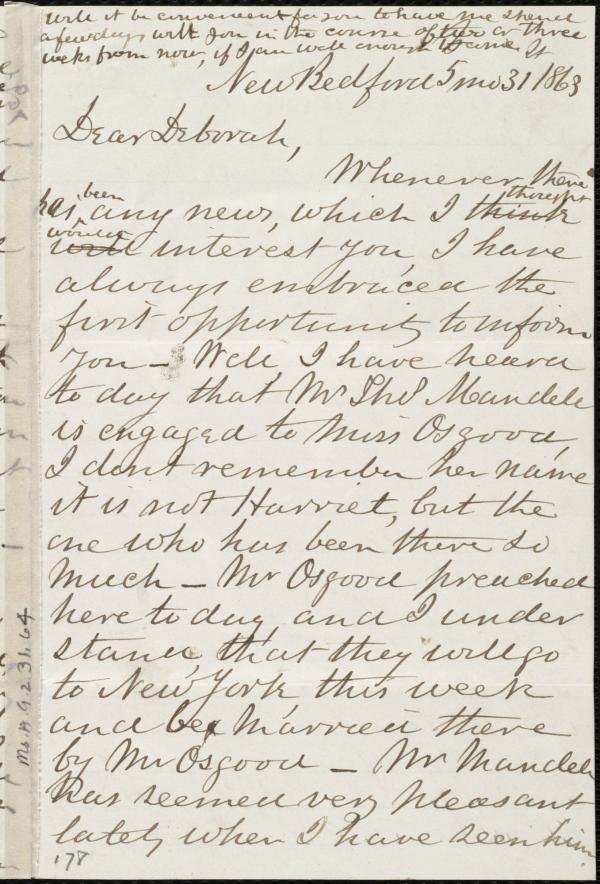 will it be convenient for you to have me spend
a few days with you in the course of two or three
weeks from now, if I am well enough to come
New Bedford 5 mo 31 1863
Dear Deborah,
Whenever there
has been any news, which I think thought
will would interest you, I have
always embraced the
first opportunity to inform
you — Well, I have heard
to day that Mr Thos Mandell
is engaged to Miss Osgood,
I dont remember her name
it is not Harriet, but the
one who has been there so
much — Mr Osgood preached
here to day, and I under
stand, that they will go
to New York, this week
and be married there
by Mr Osgood — Mr Mandell
has seemed very pleasant
lately, when I have seen him
178
Ms.A.9.2.31.64